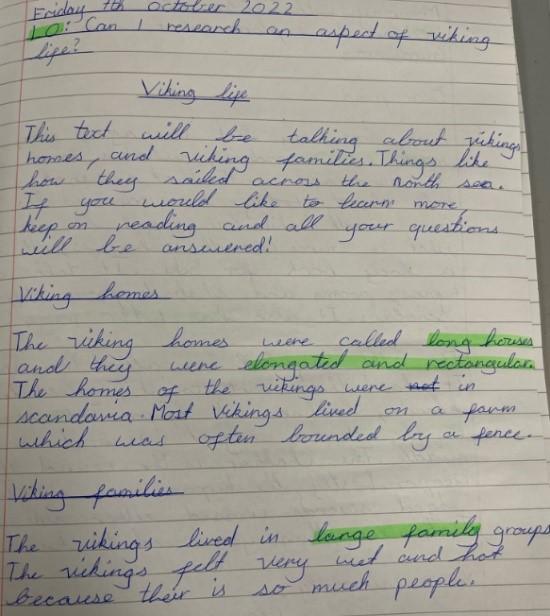 Friday 7th October 2022
LO: Can I research an aspect of viking
life?
Viking life
This text will be talking about vikings
homes, and viking families. Things like
how they sailed across the north sea.
If you would like to learn more,
keep on reading and all your questions
will be answered!
Viking homes
The viking homes were called long houses
and they were elongated and rectangular.
The homes of the vikings were not in
scandavia. Most Vikings lived on a farm
which was often bounded by a fence.
Viking families
The vikings lived in large family groups
The vikings felt very wet and hot
because their is so much people.